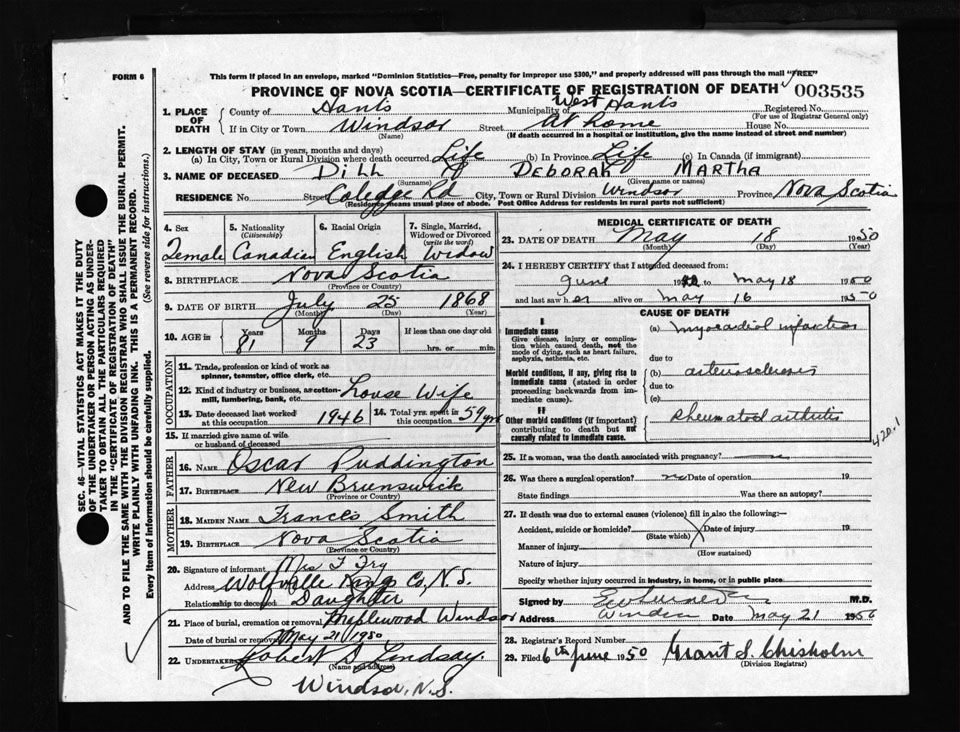 FORM 6
This form if placed in an envelope, marked "Dominion Statistics—Free, penalty for improper use $300," and properly addressed will pass through the mail "FREE"
PROVINCE OF NOVA SCOTIA—CERTIFICATE OF REGISTRATION OF DEATH 003535
1. PLACE OF DEATH County of Hants Municipality of West Hants Registered No.
(For use of Registrar General only)
If in City or Town Windsor Street At Home House No.
(Name) (If death occurred in a hospital or institution, give the name instead of street and number)
2. LENGTH OF STAY (in years, months and days)
(a) In City, Town or Rural Division where death occurred Life (b) In Province Life (c) In Canada (if immigrant)
3. NAME OF DECEASED Dill DEBORAH MARTHA
(Surname) (Given name or names)
RESIDENCE No. Street Coledge Rd City, Town or Rural Division Windsor Province Nova Scotia
(Residency means usual place of abode. Post Office Address for residents in rural parts not sufficient)
4. Sex 5. Nationality (Citizenship) 6. Racial Origin 7. Single, Married, Widowed or Divorced (write the word)
Female Canadian English Widow
8. BIRTHPLACE Nova Scotia
(Province or Country)
9. DATE OF BIRTH July 25 1868
(Month) (Day) (Year)
10. AGE in Years Months Days If less than one day old
81 9 23 hrs. or min.
OCCUPATION
11. Trade, profession or kind of work as spinner, teamster, office clerk, etc.
12. Kind of industry or business, as cotton-mill, lumbering, bank, etc. House Wife
13. Date deceased last worked at this occupation 1946 14. Total yrs. spent in this occupation 59 yrs
15. If married give name of wife or husband of deceased
FATHER
16. NAME Oscar Puddington
17. BIRTHPLACE New Brunswick
(Province or Country)
MOTHER
18. MAIDEN NAME Frances Smith
19. BIRTHPLACE Nova Scotia
(Province or Country)
20. Signature of informant Mrs T Fry
Address Wolfville Kings Co, N.S.
Relationship to deceased Daughter
21. Place of burial, cremation or removal Maplewood Windsor
Date of burial or removal May 21 1950
22. UNDERTAKER Robert D Lindsay.
(Name and address)
Windsor, N.S.
MEDICAL CERTIFICATE OF DEATH
23. DATE OF DEATH May 18 1950
(Month) (Day) (Year)
24. I HEREBY CERTIFY that I attended deceased from:
June 19 to May 18 1950
and last saw her alive on May 16 1950
CAUSE OF DEATH
I
Immediate cause
Give disease, injury or complication which caused death, not the mode of dying, such as heart failure, asphyxia, asthenia, etc.
(a) myocardial infarction
due to
Morbid conditions, if any, giving rise to immediate cause (stated in order proceeding backwards from immediate cause).
(b) arteriosclerosis
due to
(c)
II
Other morbid conditions (if important) contributing to death but not causally related to immediate cause.
Rheumatoid arthritis
420.1
25. If a woman, was the death associated with pregnancy?
26. Was there a surgical operation? no Date of operation 19
State findings Was there an autopsy?
27. If death was due to external causes (violence) fill in also the following:—
Accident, suicide or homicide? Date of injury 19
(State which)
Manner of injury
(How sustained)
Nature of injury
Specify whether injury occurred in industry, in home, or in public place.
Signed by M.D.
Address Windsor Date May 21 1950
28. Registrar's Record Number
29. Filed 6th June 1950 Grant S. Chisholm
(Division Registrar)
SEC. 46—VITAL STATISTICS ACT MAKES IT THE DUTY
OF THE UNDERTAKER OR PERSON ACTING AS UNDER-
TAKER TO OBTAIN ALL THE PARTICULARS REQUIRED
IN THE "CERTIFICATE OF REGISTRATION OF DEATH"
AND TO FILE THE SAME WITH THE DIVISION REGISTRAR WHO SHALL ISSUE THE BURIAL PERMIT.
WRITE PLAINLY WITH UNFADING INK. THIS IS A PERMANENT RECORD.
Every item of information should be carefully supplied. (See reverse side for instructions.)